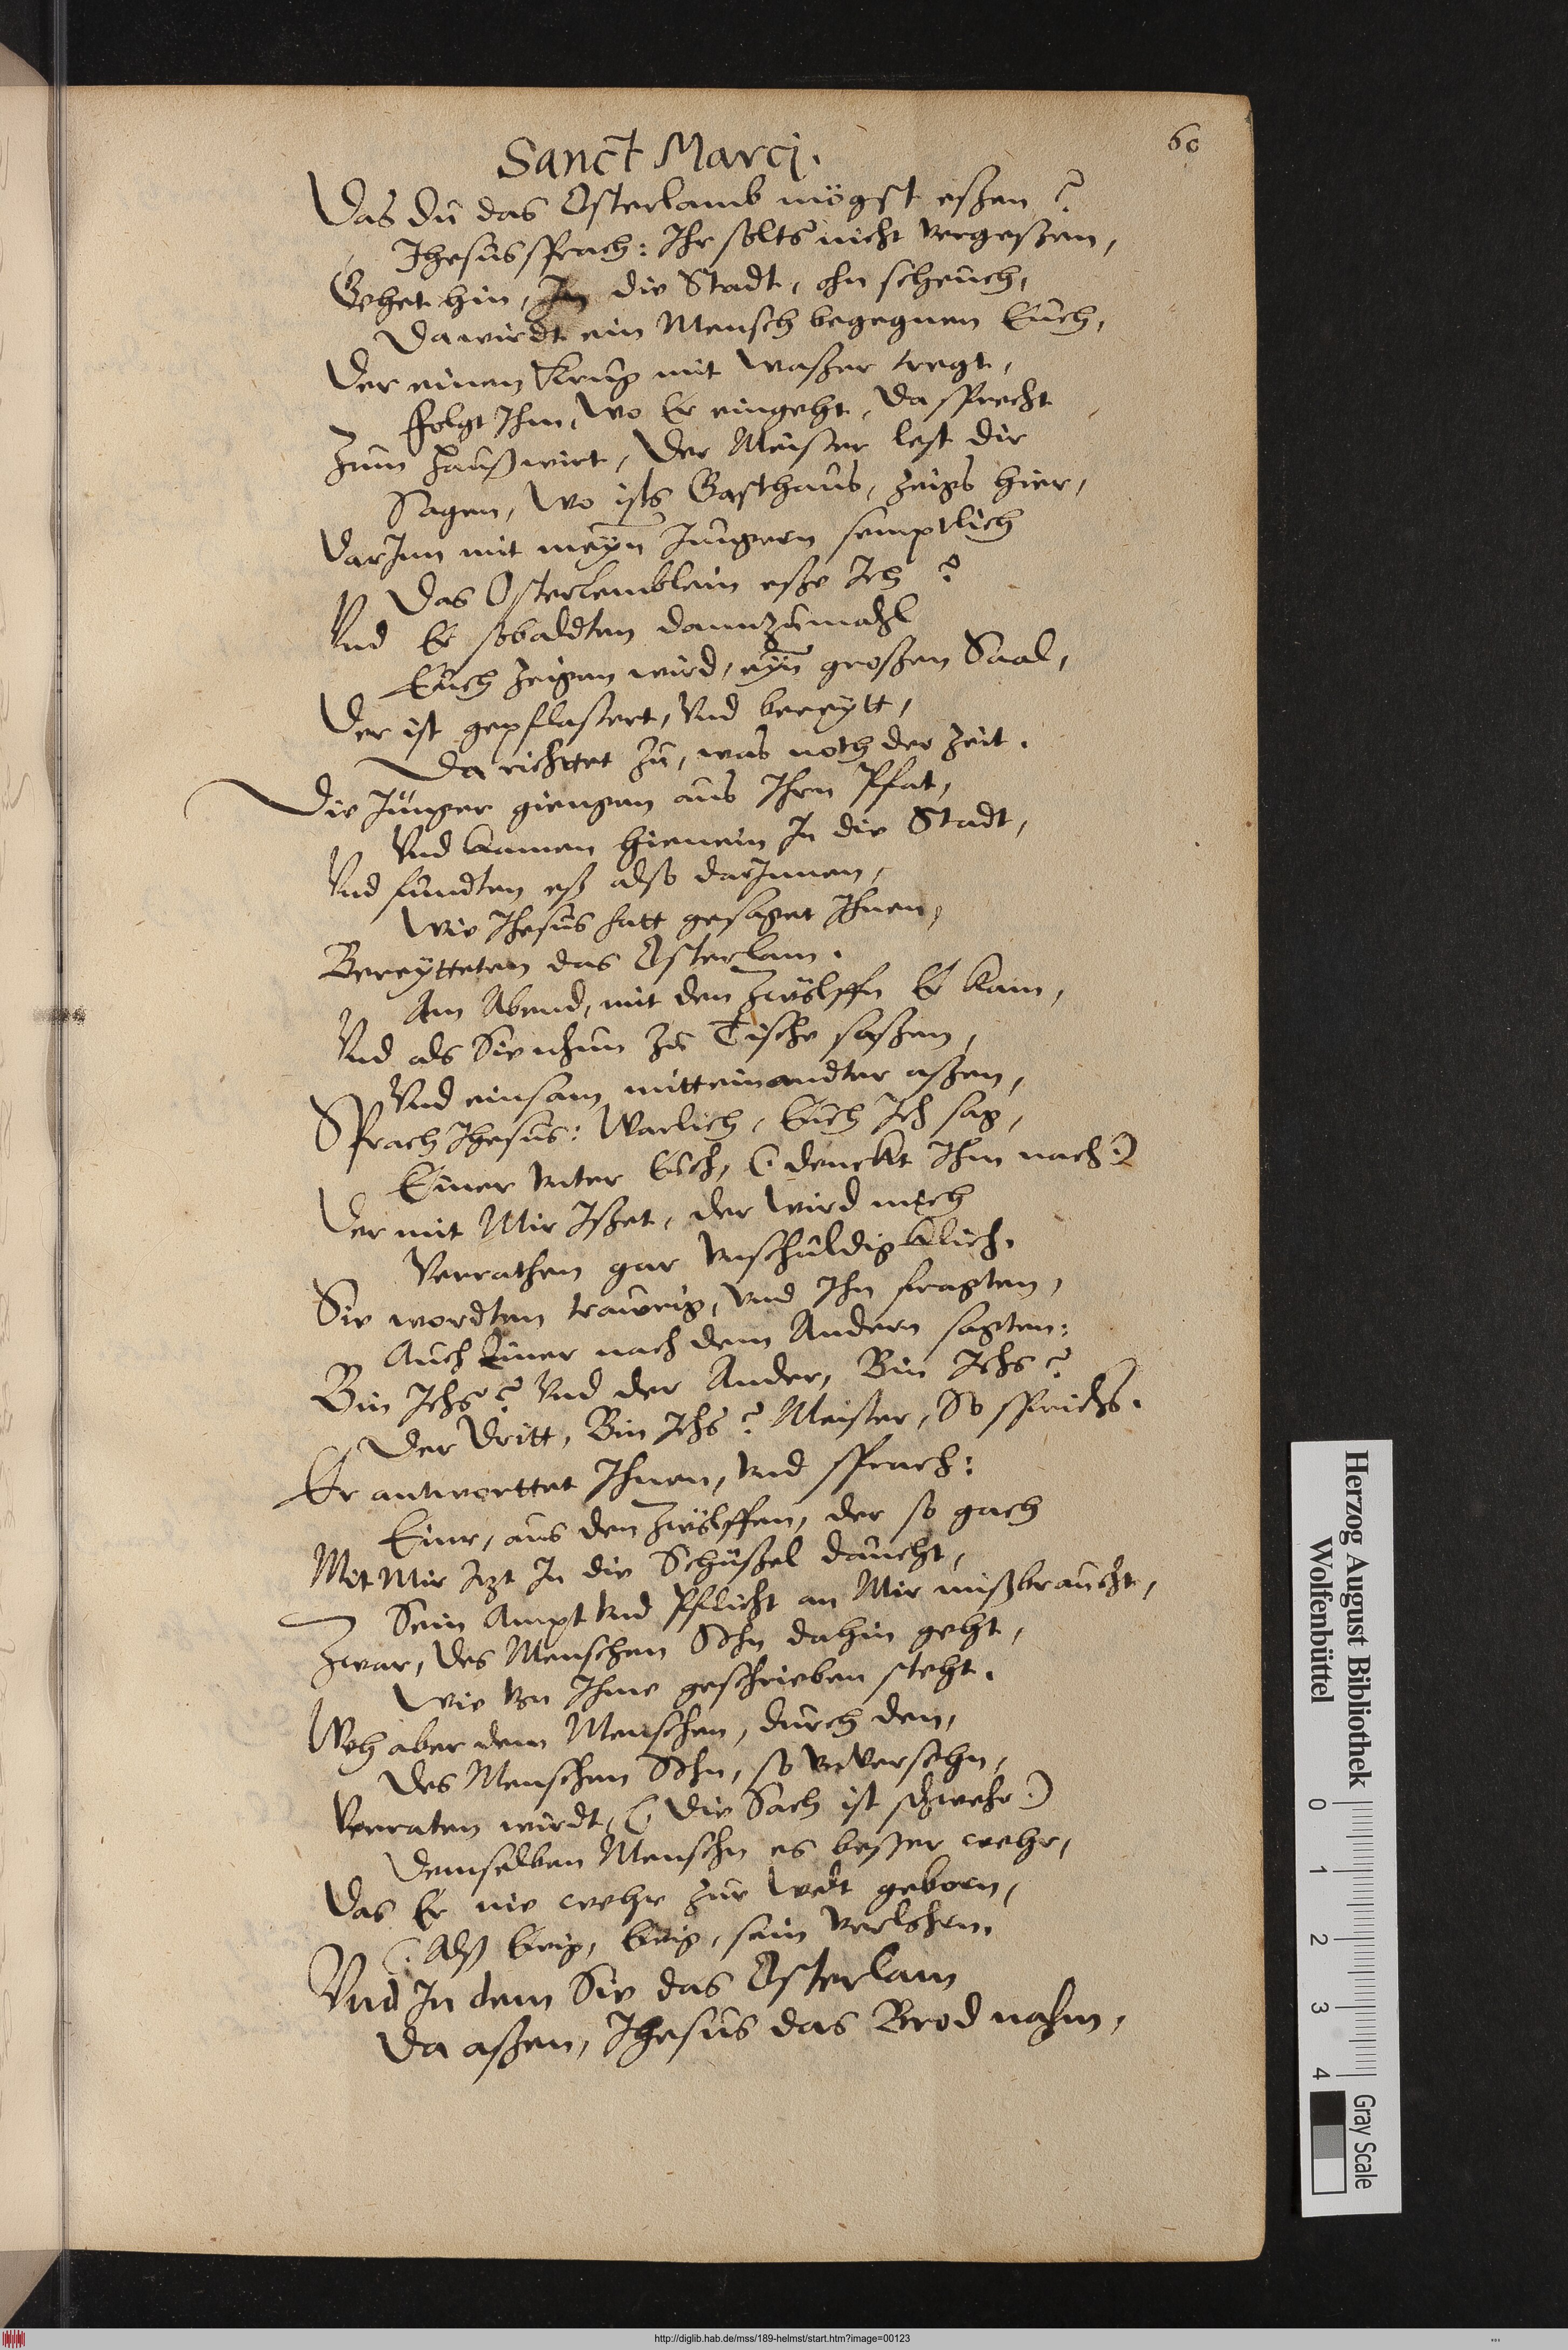 60
Sanct Marcj.
Das du das Osterlamb mögst eßen?
Jhesus sprach: Ihr solts nicht vergeßen,
Gehet hin, In die Stadt, ohn scheuch,
Da wirdt ein Mensch begegnen Euch,
Der einen Krug mit waßer tregt,
ffolgt Ihm, Wo Er eingeht, Da sprecht
Zum Haußwirt, Der Meister lest dir
Sagen, Wo ists Gasthaus, zeigs hier,
DarInn mit meyn Jungern semptlich
Das Osterlemblein eße Ich?
Vnd Er sobaldten dannzumahl
Euch zeigen wird, eyn großen Saal,
Der ist gepflastert, Vnd bereytt,
Da richttet zu, was noth der Zeit.
Die Jünger giengen aus Ihrn Pfat,
Vnd kamen hienein In die Stadt,
Vnd fundten eß also darInnen,
Wie Jhesus hatt gesaget Ihnen,
Bereytteten das Osterlam.
Am Abend, mit den Zwölffn Er kam,
Vnd als Sie nhun zu Tische saßen,
Vnd einsam mitteinandter aßen,
Sprach Jhesus: Warlich, Euch Ich sag,
Einer vnter Euch, (: denckt Ihm nach :)
Der mit Mir Ißet, der wird mich
Verrathen gar vnschuldigklich.
Sie wordten trawrig, Vnd Ihn fragten,
Auch Einer nach dem Andern sagten:
Bin Ichs? Vnd der Ander, Bin Ichs?
Der Dritt, Bin Ichs? Meister, So sprichs.
Er antworttet Ihnen, Vnd sprach:
Einr, aus den Zwölffen, der so gach
Mit Mir Izt In die Schüßel daucht,
Sein Ampt Vnd Pflicht an Mir mißbraucht,
Zwar, des Menschen Sohn dahin geht,
Wie von Ihme geschrieben steht.
Weh aber dem Menschen, durch den,
Des Menschen Sohn, so vnVersehn,
Verraten wirdt, (: Die Sach ist schwehr :)
Demselben Menschn es beßer wehr,
Das Er nie wehr zur Welt geborn,
(: Alß Ewig, Ewig, sein verlohrn.
Vnd In dem Sie das Osterlam
Da aßen, Jhesus das Brod nahm,
Herzog August Bibliothek
Wolfenbüttel
0 1 2 3 4
Gray Scale
http://diglib.hab.de/mss/189-helmst/start.htm?image=00123